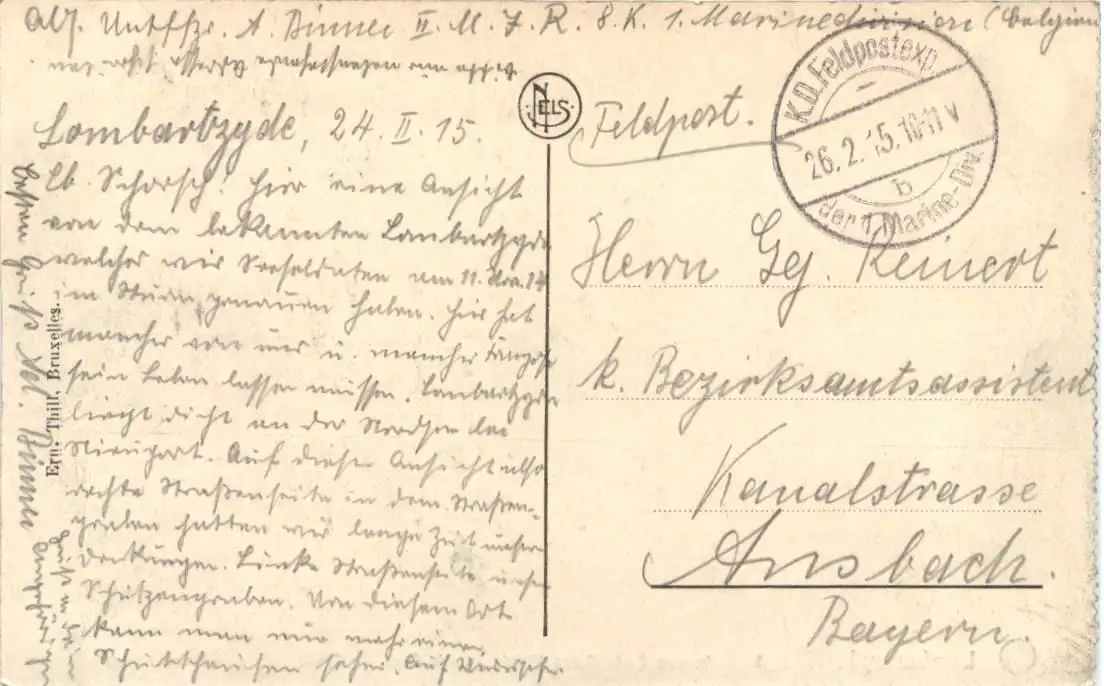 Abs. Untffzr. A. Binner II. M. I. R. 8. K. 1. Marinedivision (Belgien
Lombartzyde, 24. II. 15.
Lb. Schorsch! Hier eine Ansicht
von dem bekannten Lombartzyde
welches wir Seesoldaten am 11. Nov. 14
im Sturm genommen haben. Hier hat
mancher von uns u. mancher Franzose
sein Leben lassen müssen. Lombartzyde
liegt dicht an der Nordsee bei
Nieuport. Auf dieser Ansicht also
rechte Straßenseite in dem Straßen-
graben hatten wir lange Zeit unsere
Deckungen. Linke Straßenseite unser
Schützengraben. Von diesem Ort
kann man nur mehr einen
Schutthaufen sehen. Auf Wiedersehn
Besten Gruß Adl. Binner
Ern. Thill, Bruxelles.
NELS
Feldpost.
K.D. Feldpostexp.
26.2.15. 10-11 V
b
der 1. Marine-Div.
Herrn Gg. Reinert
k. Bezirksamtsassistent
Kanalstrasse
Ansbach.
Bayern.